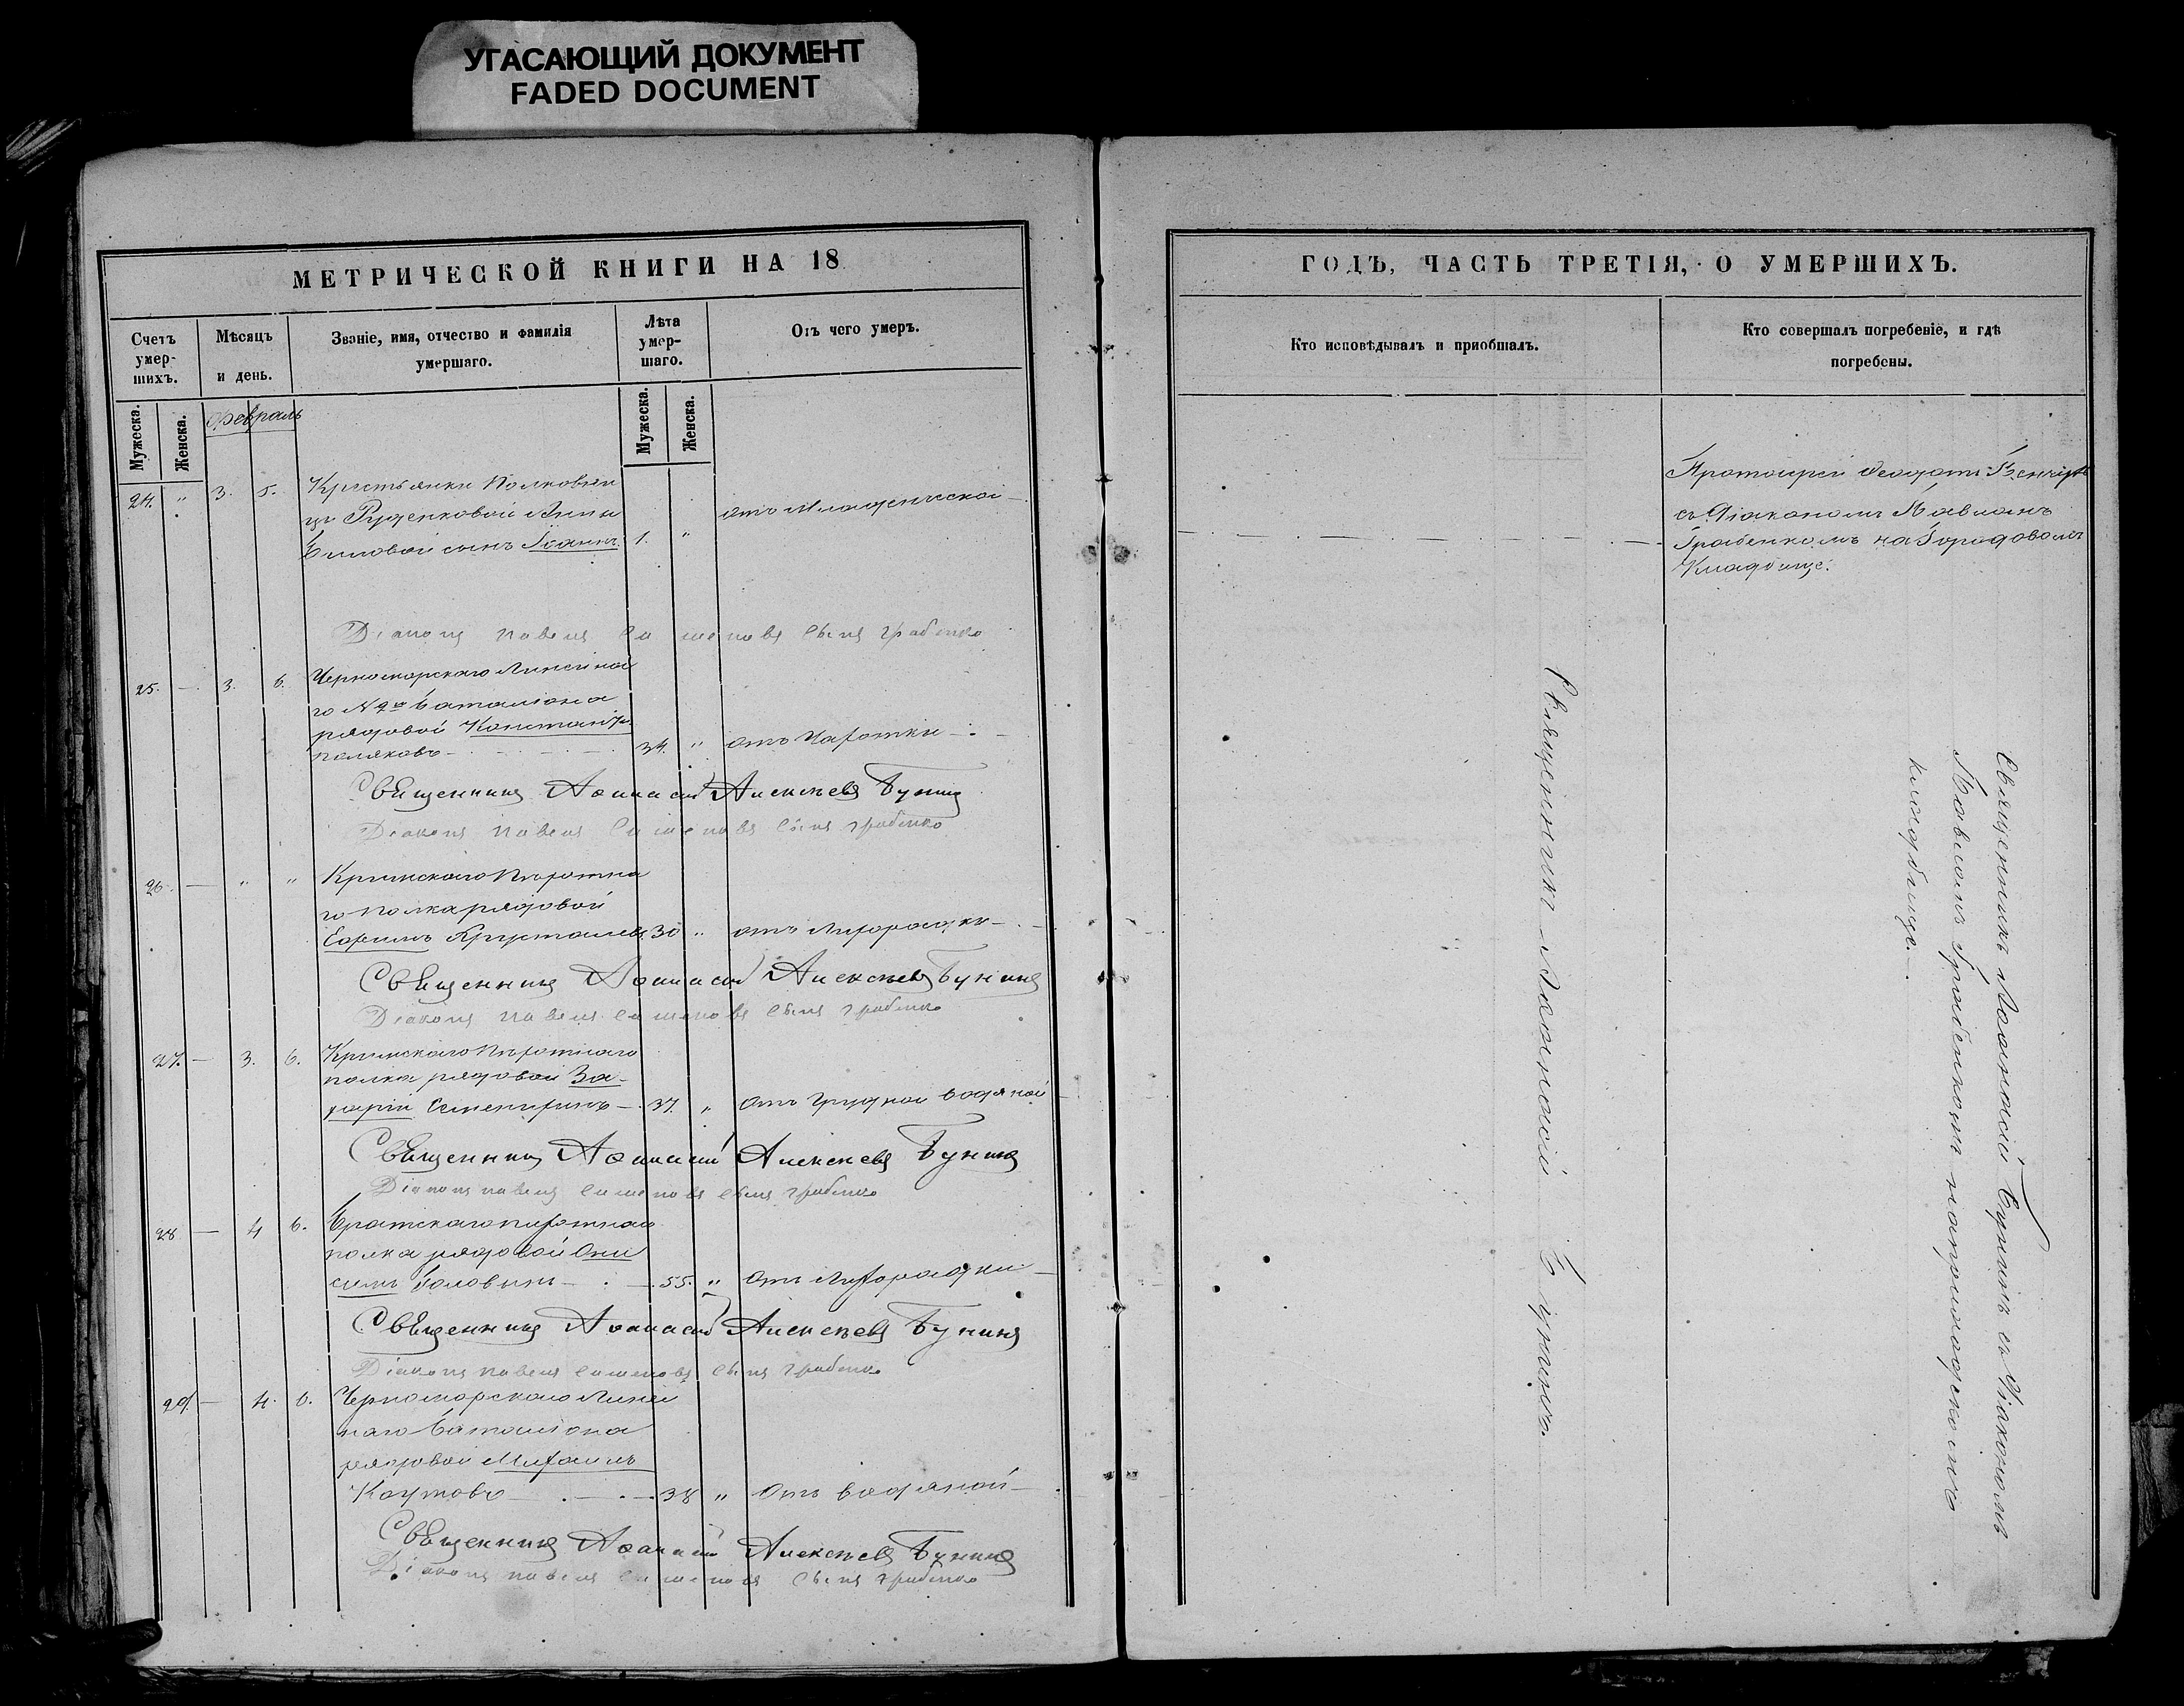 УГАСАЮЩИЙ ДОКУМЕНТ
FADED DOCUMENT
МЕТРИЧЕСКОЙ КНИГИ НА 18
Счетъ умер-шихъ.
Мѣсяцъ и день.
Званіе, имя, отчество и фамилія умершаго.
Лѣта умер-шаго.
Отъ чего умеръ.
Мужеска.
Женска.
Февраль
Мужеска.
Женска.
24. " 3. 5. Крестьянки Полковни
цы Руденковой Анны
Билловой сынъ Іоаннъ. 1. " отъ Младенческой
Діаконъ Павелъ сынъ Грабенко
25. — 3. 6. Черноморскаго Линейна
го № 2го баталіона
рядовой Константинъ
Поляковъ 34. " отъ Чахотки
Священникъ Аѳанасій Алексѣевъ Бунинъ
Діаконъ Павелъ сынъ Грабенко
26. — " " Крымскаго Пѣхотна
го полка рядовой
Ефимъ Хрусталевъ 30 " отъ Лихорадки
Священникъ Аѳанасій Алексѣевъ Бунинъ
Діаконъ Павелъ сынъ Грабенко
27. — 3. 6. Крымскаго Пѣхотнаго
полка рядовой За-
харій 37. " отъ Грудной водяной
Священникъ Аѳанасій Алексѣевъ Бунинъ
Діаконъ Павелъ сынъ Грабенко
28 — 4 6. Брестскаго пѣхотнаго
полка рядовой Они
симъ Головинъ 55. " отъ Лихорадки
Священникъ Аѳанасій Алексѣевъ Бунинъ
Діаконъ Павелъ сынъ Грабенко
29. — 4. 6. Черноморскаго Линей
наго баталіона
рядовой Михаилъ
38 " Отъ водяной
Священникъ Аѳанасій Алексѣевъ Бунинъ
Діаконъ Павелъ сынъ Грабенко
ГОДЪ, ЧАСТЬ ТРЕТІЯ, О УМЕРШИХЪ.
Кто исповѣдывалъ и пріобщалъ.
Кто совершалъ погребеніе, и гдѣ
погребены.
Протоіерей
съ Діакономъ Павломъ
Грабенкомъ на Городовомъ
Кладбище.
Священникъ Аѳанасій Бунинъ.
Священникъ Аѳанасій Бунинъ съ Діакономъ
Павломъ Грабенкомъ на приходскомъ
кладбище.